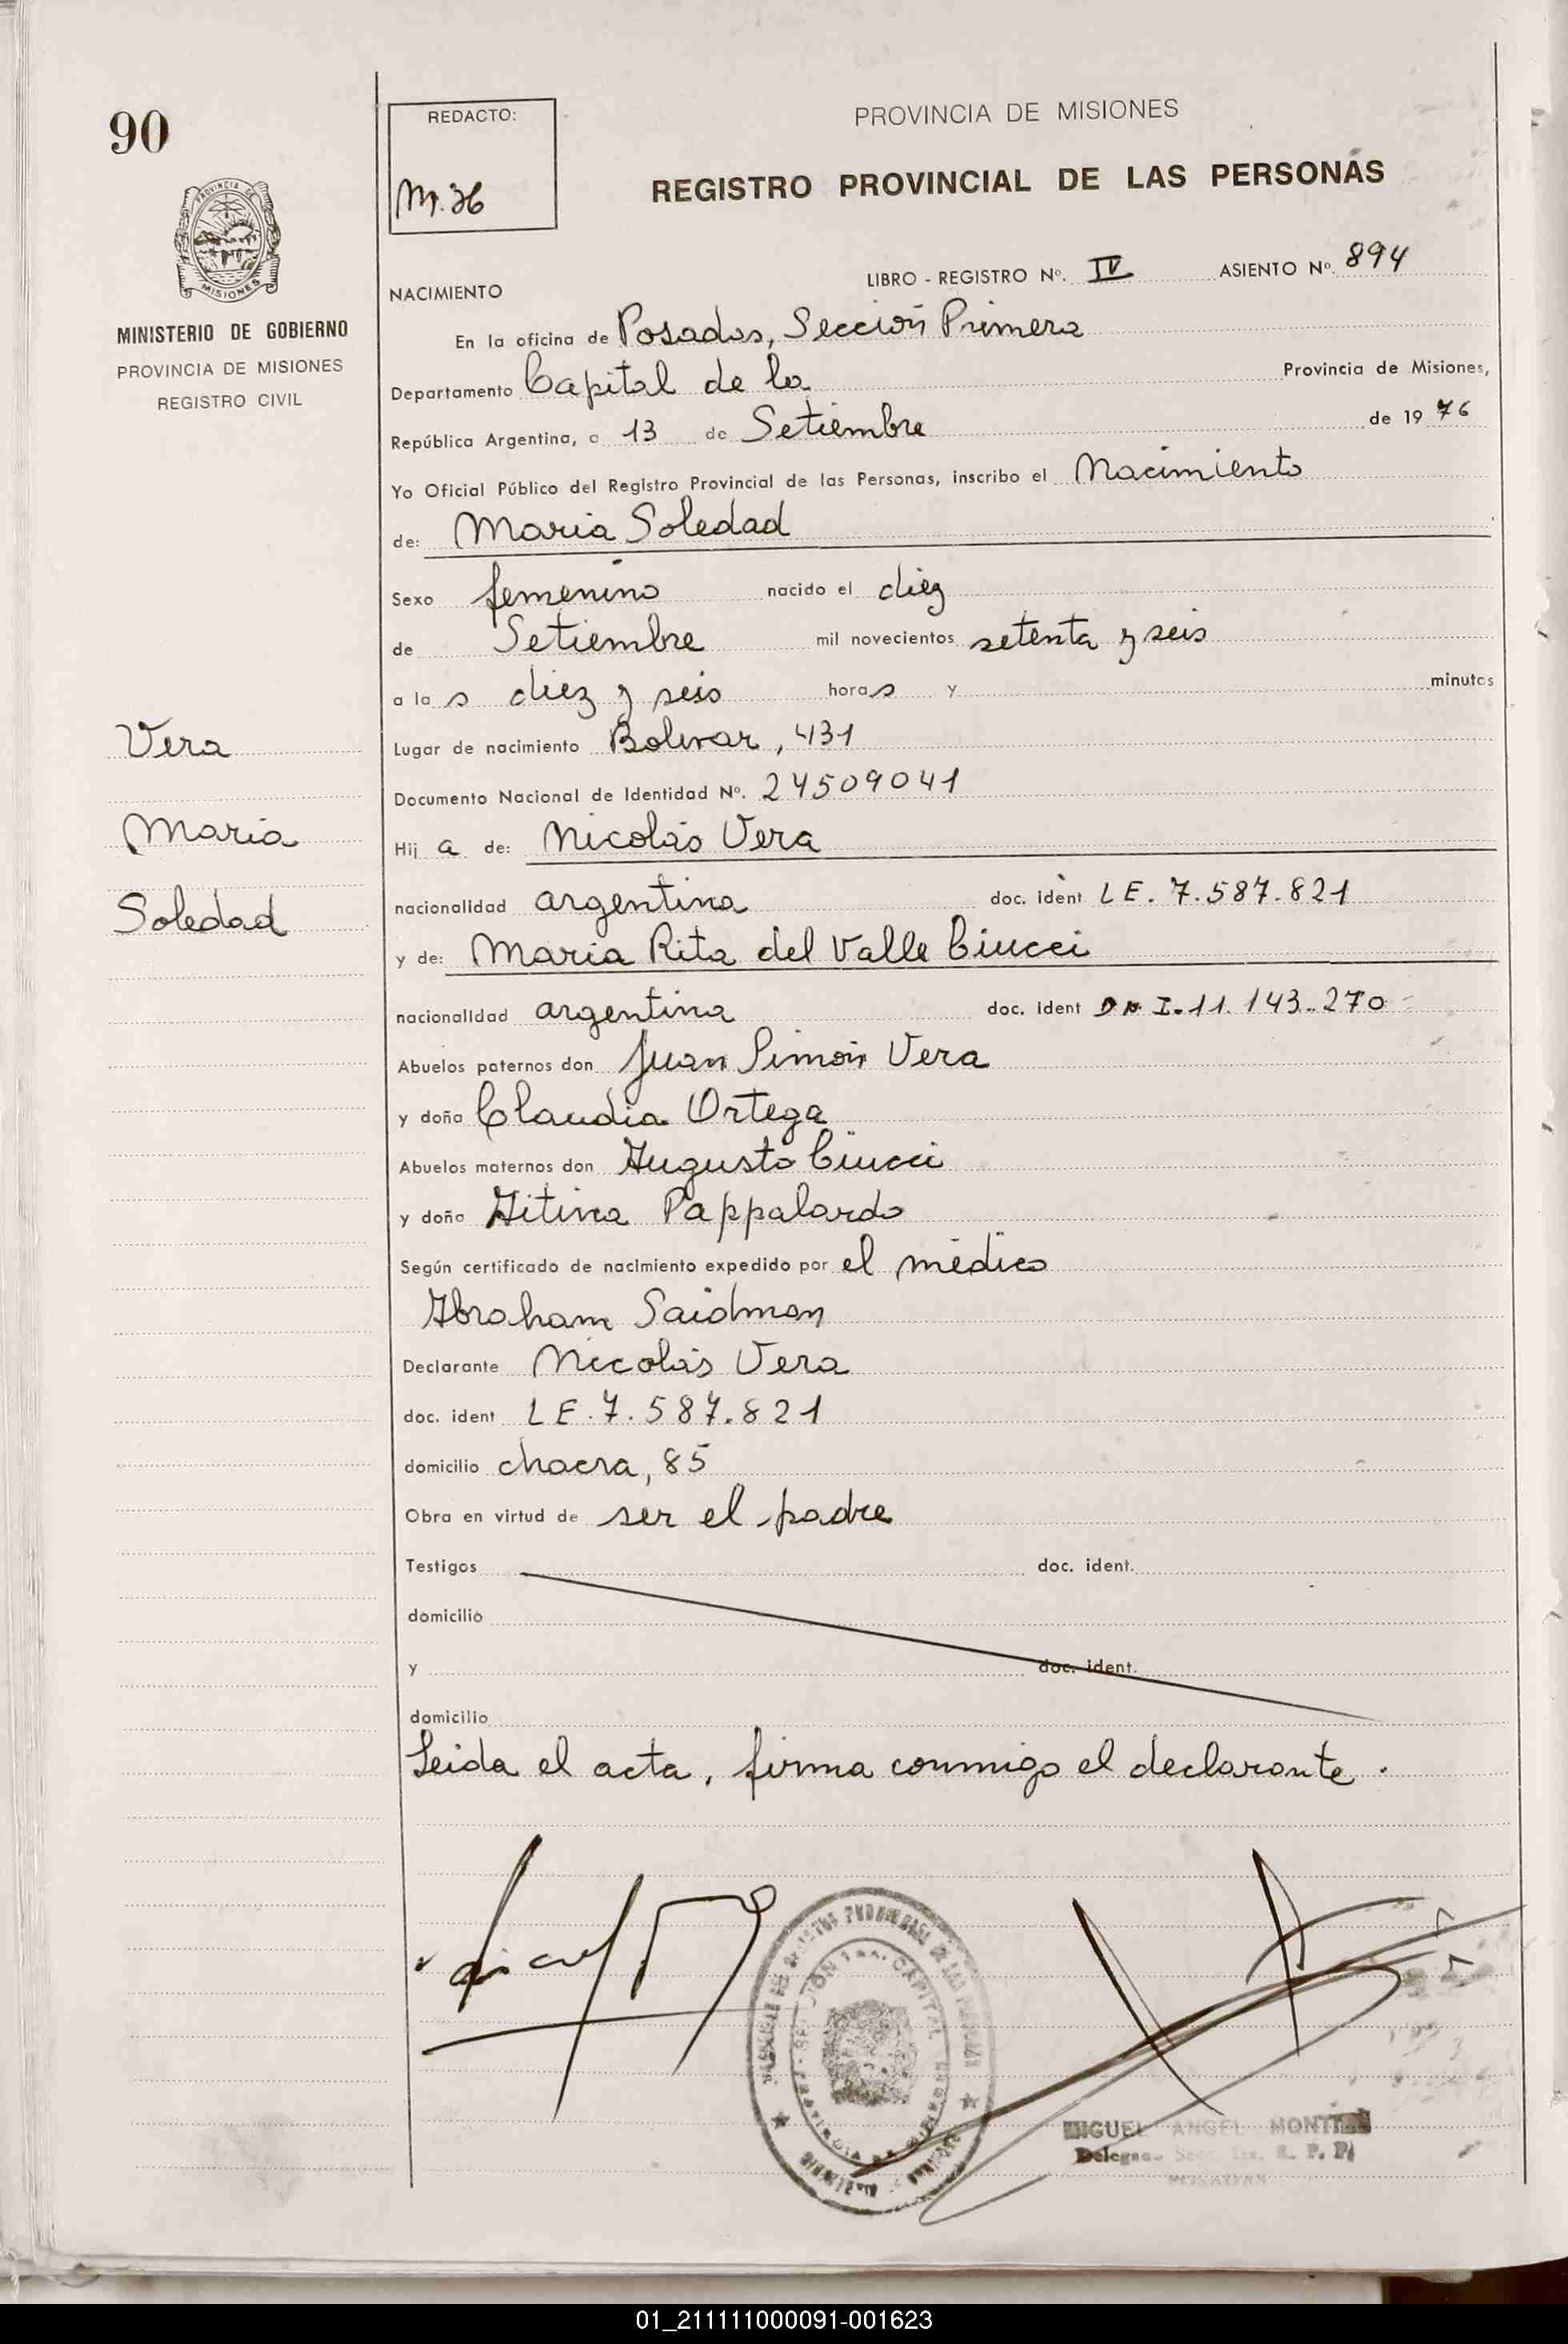 90
REDACTO:
PROVINCIA DE MISIONES
REGISTRO PROVINCIAL DE LAS PERSONAS
PROVINCIA DE
MISIONES
MINISTERIO DE GOBIERNO
PROVINCIA DE MISIONES
REGISTRO CIVIL
LIBRO - REGISTRO Nº. IV ASIENTO Nº. 894
NACIMIENTO
En la oficina de Posadas, Sección Primera
Departamento Capital de la Provincia de Misiones,
República Argentina, a 13 de Setiembre de 1976
Yo Oficial Público del Registro Provincial de las Personas, inscribo el Nacimiento
de: Maria Soledad
Sexo femenino nacido el diez
de Setiembre mil novecientos setenta y seis
a las diez y seis horas y minutos
Vera
Lugar de nacimiento Bolivar, 431
Documento Nacional de Identidad Nº. 24509041
Maria
Hija de: Nicolás Vera
Soledad
nacionalidad argentina doc. ident LE. 7.587.821
y de: Maria Rita del Valle Ciucci
nacionalidad argentina doc. ident D.N.I. 11.143.270
Abuelos paternos don Juan Simón Vera
y doña Claudia Ortega
Abuelos maternos don Augusto Ciucci
y doña Aitina Pappalardo
Según certificado de nacimiento expedido por el médico
Abraham Saidman
Declarante Nicolás Vera
doc. ident LE. 7.587.821
domicilio chacra, 85
Obra en virtud de ser el padre
Testigos doc. ident.
domicilio
y doc. ident.
domicilio
Leida el acta, firma conmigo el declarante.
CAPITAL
MIGUEL ANGEL
R. P. P.
01_211111000091-001623